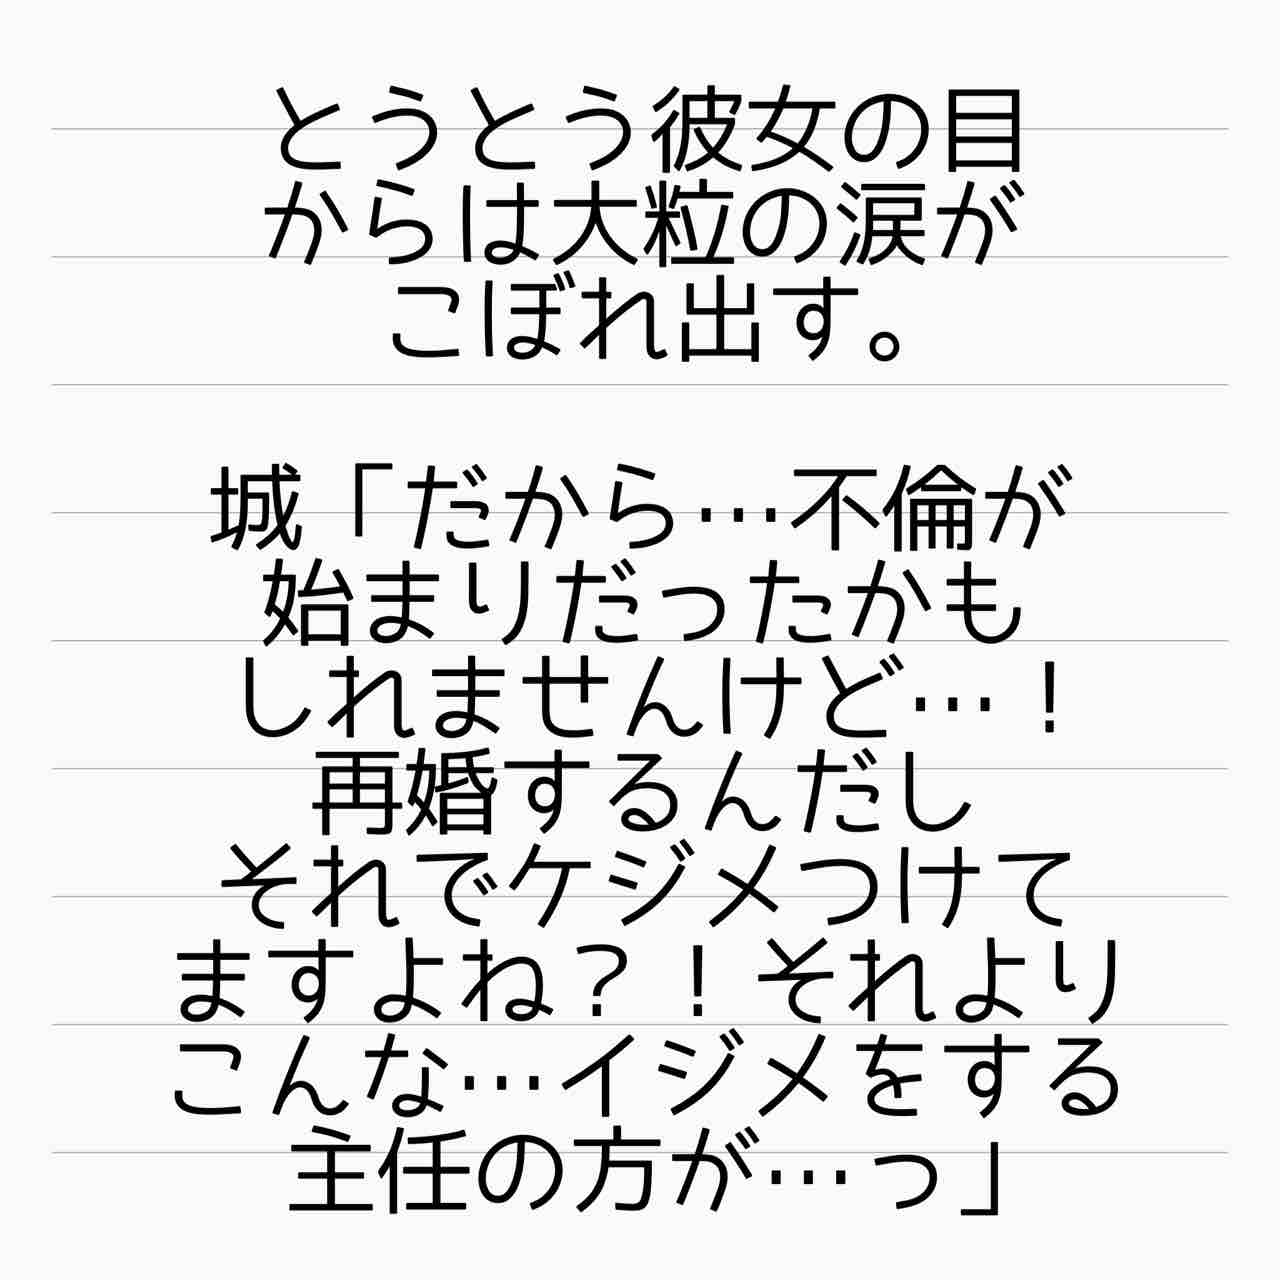 とうとう彼女の目
からは大粒の涙が
こぼれ出す。
城「だから…不倫が
始まりだったかも
しれませんけど…！
再婚するんだし
それでケジメつけて
ますよね？！それより
こんな…イジメをする
主任の方が…っ」